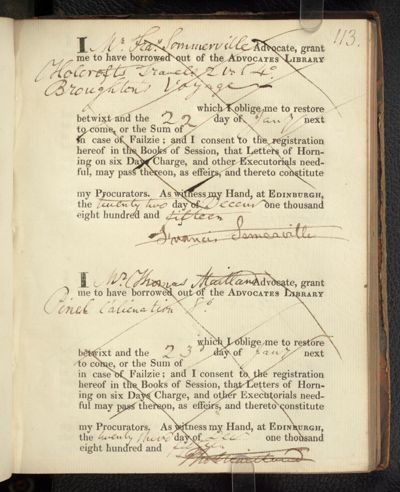 113.
I Mr. Fra.s Sommerville Advocate, grant
me to have borrowed out of the ADVOCATES LIBRARY
Holcrofts Travels 2 vol 4o.
Broughtons Voyage
which I oblige me to restore
betwixt and the 22 day of Jany next
to come, or the Sum of
in case of Failzie; and I consent to the registration
hereof in the Books of Session, that Letters of Horn-
ing on six Days Charge, and other Executorials need-
ful, may pass thereon, as effeirs, and thereto constitute
my Procurators. As witness my Hand, at EDINBURGH,
the twenty two day of Decem one thousand
eight hundred and fifteen
Francis Somerville
I Mr. Thomas Maitland Advocate, grant
me to have borrowed out of the ADVOCATES LIBRARY
Pinel 8o
which I oblige me to restore
betwixt and the 23 day of Jany next
to come, or the Sum of
in case of Failzie; and I consent to the registration
hereof in the Books of Session, that Letters of Horn-
ing on six Days Charge, and other Executorials need-
ful may pass thereon, as effeirs, and thereto constitute
my Procurators. As witness my Hand, at EDINBURGH,
the twenty third day of Dec one thousand
eight hundred and fifteen
Tho Maitland